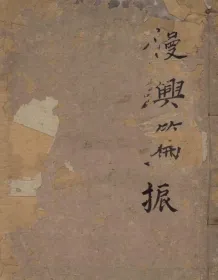 漫興振